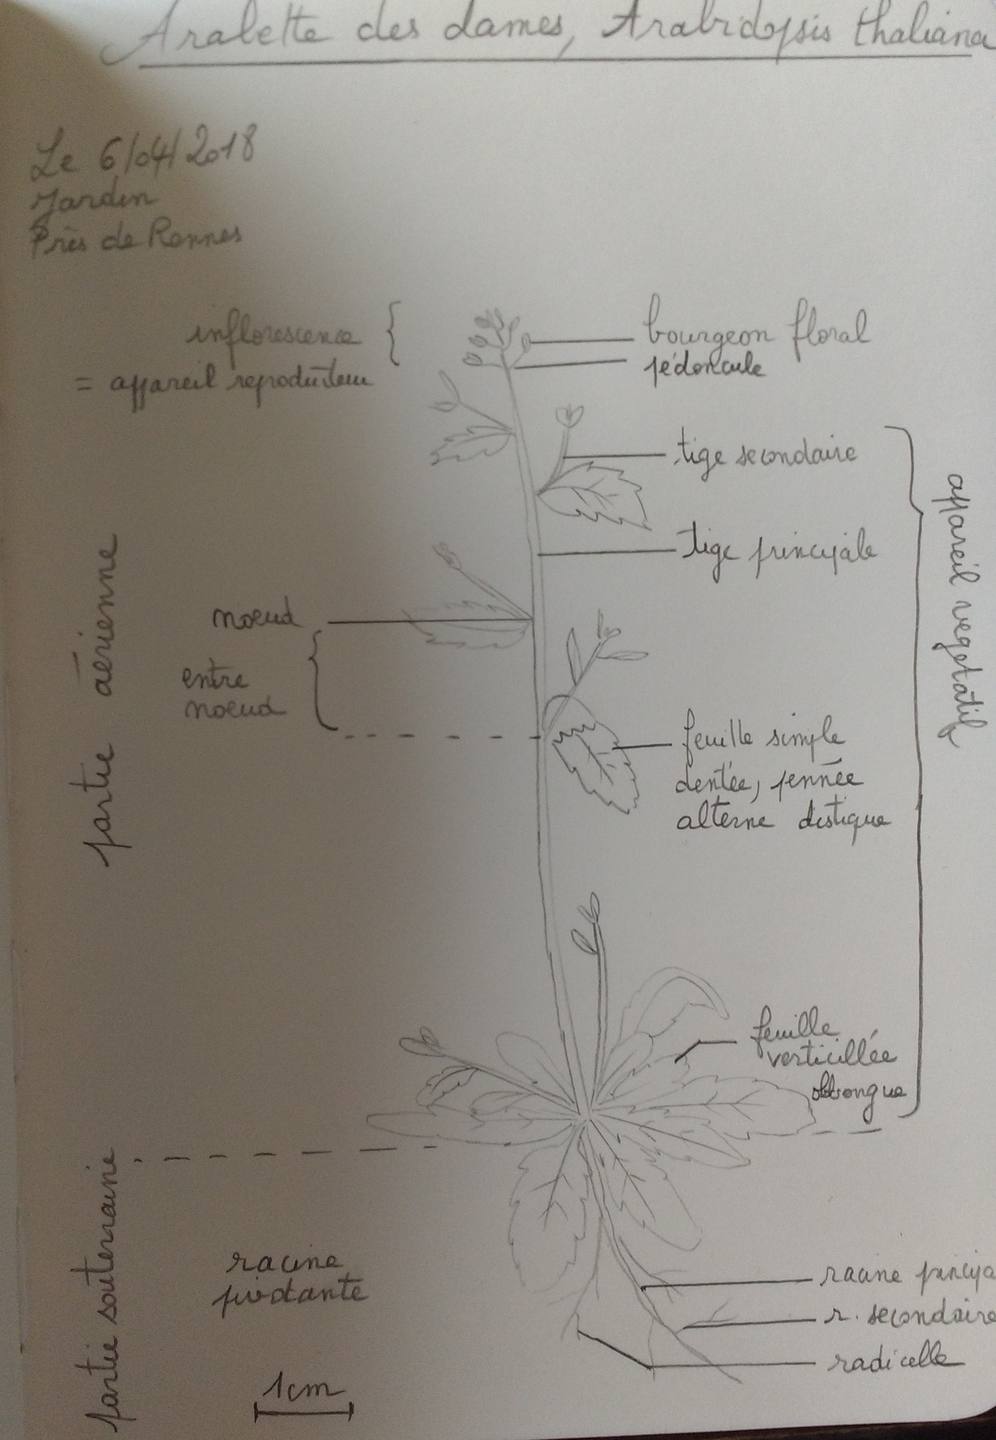 Arabette des dames, Arabidopsis thaliana
Le 6/04/2018
Jardin
Près de Rennes
inflorescence
= appareil reproducteur
bourgeon floral
pédoncule
tige secondaire
tige principale
appareil végétatif
partie aérienne
noeud
entre
noeud
feuille simple
dentée, pennée
alterne distique
feuille
verticillée
oblongue
partie souterraine
racine
pivotante
racine principa
r. secondaire
radicelle
1cm